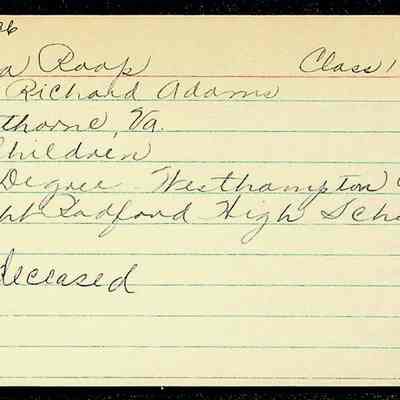 26
a Roop Class 1
Richard Adams
thorne, Va.
Children
Degree - Westhampton
Radford High Scho
deceased